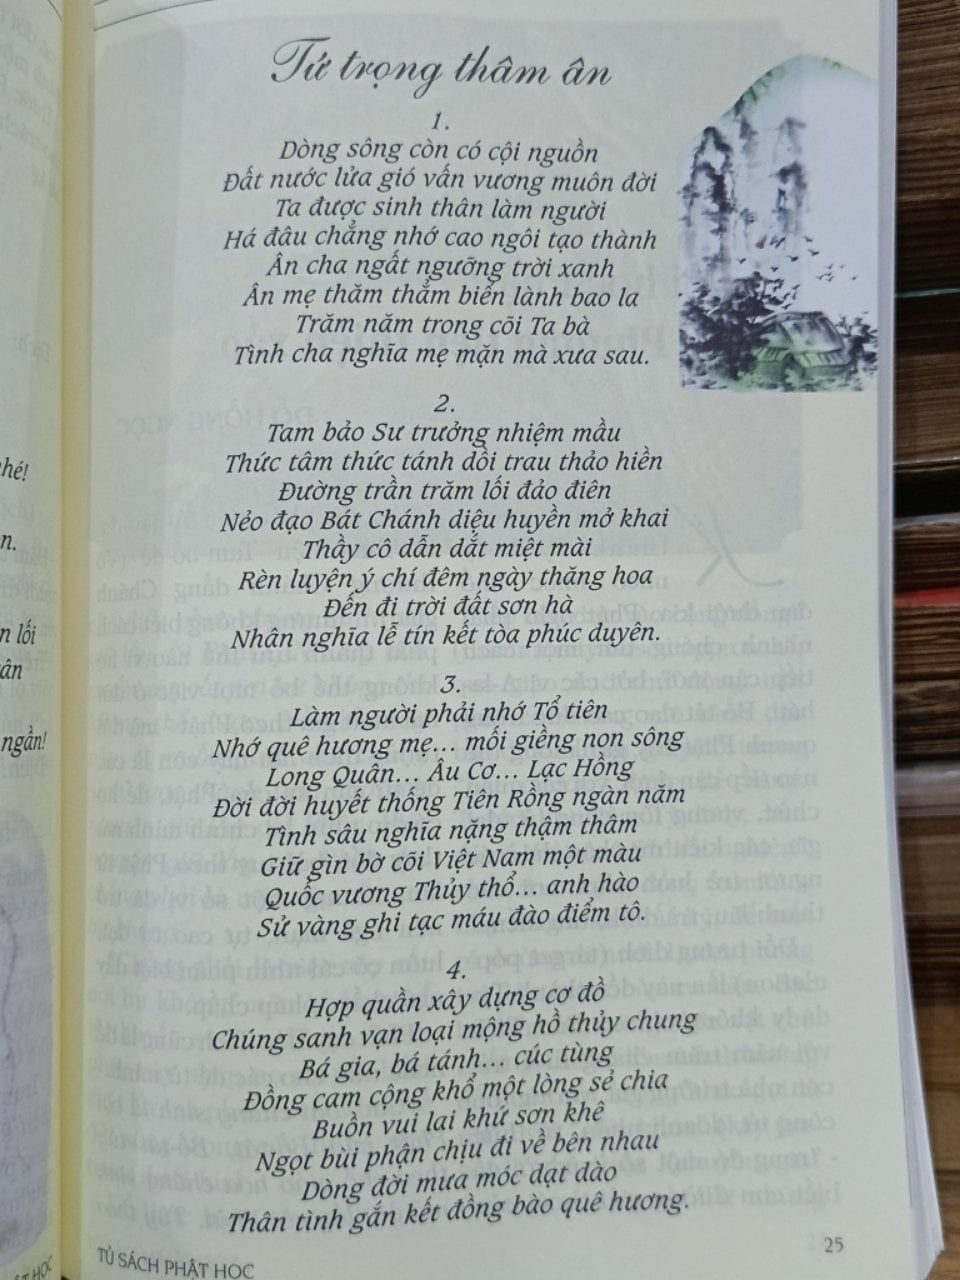 Tứ trọng thâm ân
1.
Dòng sông còn có cội nguồn
Đất nước lửa gió vấn vương muôn đời
Ta được sinh thân làm người
Há đâu chẳng nhớ cao ngôi tạo thành
Ân cha ngất ngưỡng trời xanh
Ân mẹ thăm thẳm biển lành bao la
Trăm năm trong cõi Ta bà
Tình cha nghĩa mẹ mặn mà xưa sau.
2.
Tam bảo Sư trưởng nhiệm mầu
Thức tâm thức tánh dồi trau thảo hiền
Đường trần trăm lối đảo điên
Nẻo đạo Bát Chánh diệu huyền mở khai
Thầy cô dẫn dắt miệt mài
Rèn luyện ý chí đêm ngày thăng hoa
Đến đi trời đất sơn hà
Nhân nghĩa lễ tín kết tòa phúc duyên.
3.
Làm người phải nhớ Tổ tiên
Nhớ quê hương mẹ... mối giềng non sông
Long Quân... Âu Cơ... Lạc Hồng
Đời đời huyết thống Tiên Rồng ngàn năm
Tình sâu nghĩa nặng thậm thâm
Giữ gìn bờ cõi Việt Nam một màu
Quốc vương Thủy thổ... anh hào
Sử vàng ghi tạc máu đào điểm tô.
4.
Hợp quần xây dựng cơ đồ
Chúng sanh vạn loại mộng hồ thủy chung
Bá gia, bá tánh... cúc tùng
Đồng cam cộng khổ một lòng sẻ chia
Buồn vui lai khứ sơn khê
Ngọt bùi phận chịu đi về bên nhau
Dòng đời mưa móc dạt dào
Thân tình gắn kết đồng bào quê hương.
TỦ SÁCH PHẬT HỌC
25